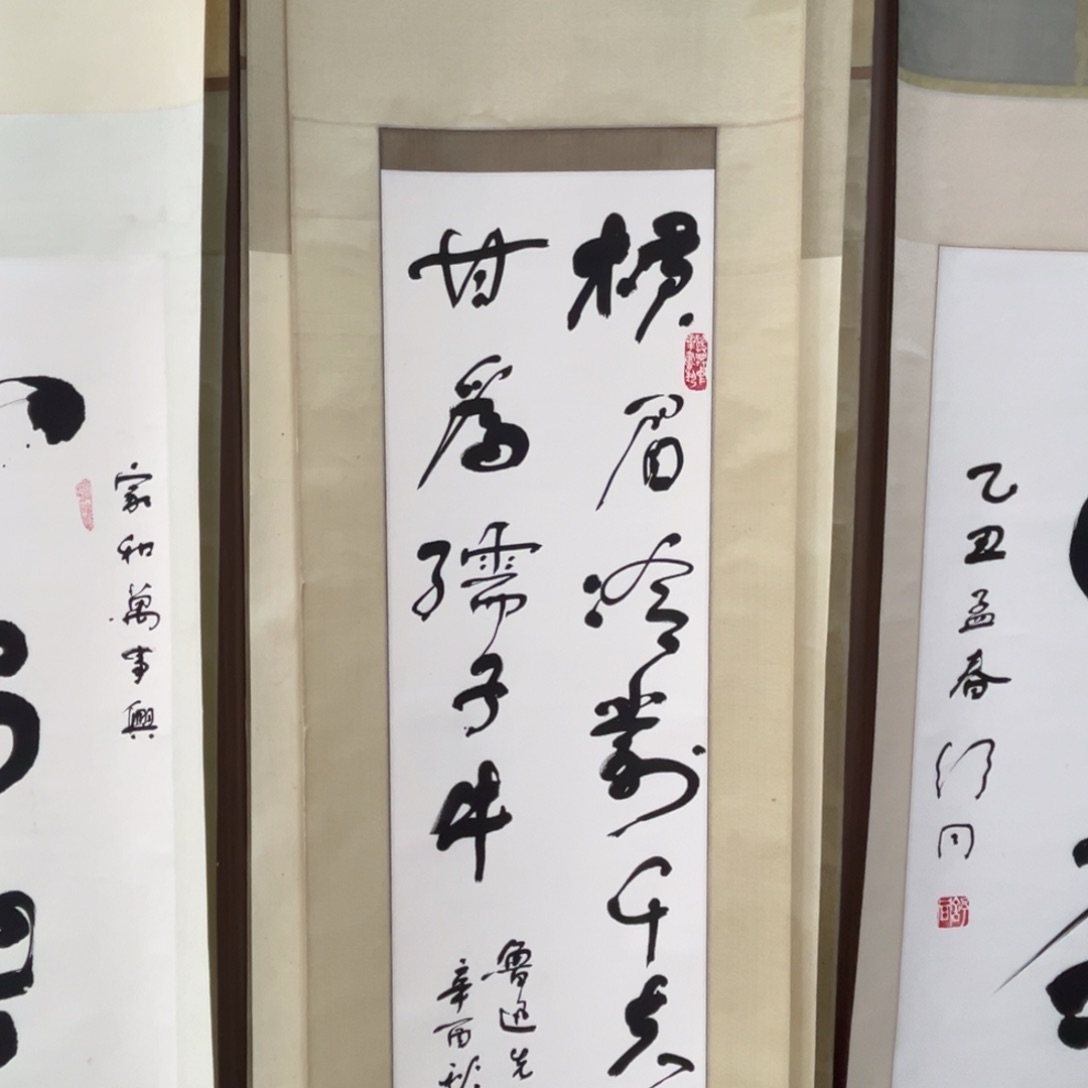 乙丑孟春舒同
舒同
横眉冷對千夫
甘爲孺子牛
魯迅先
辛酉秋
家和萬事興